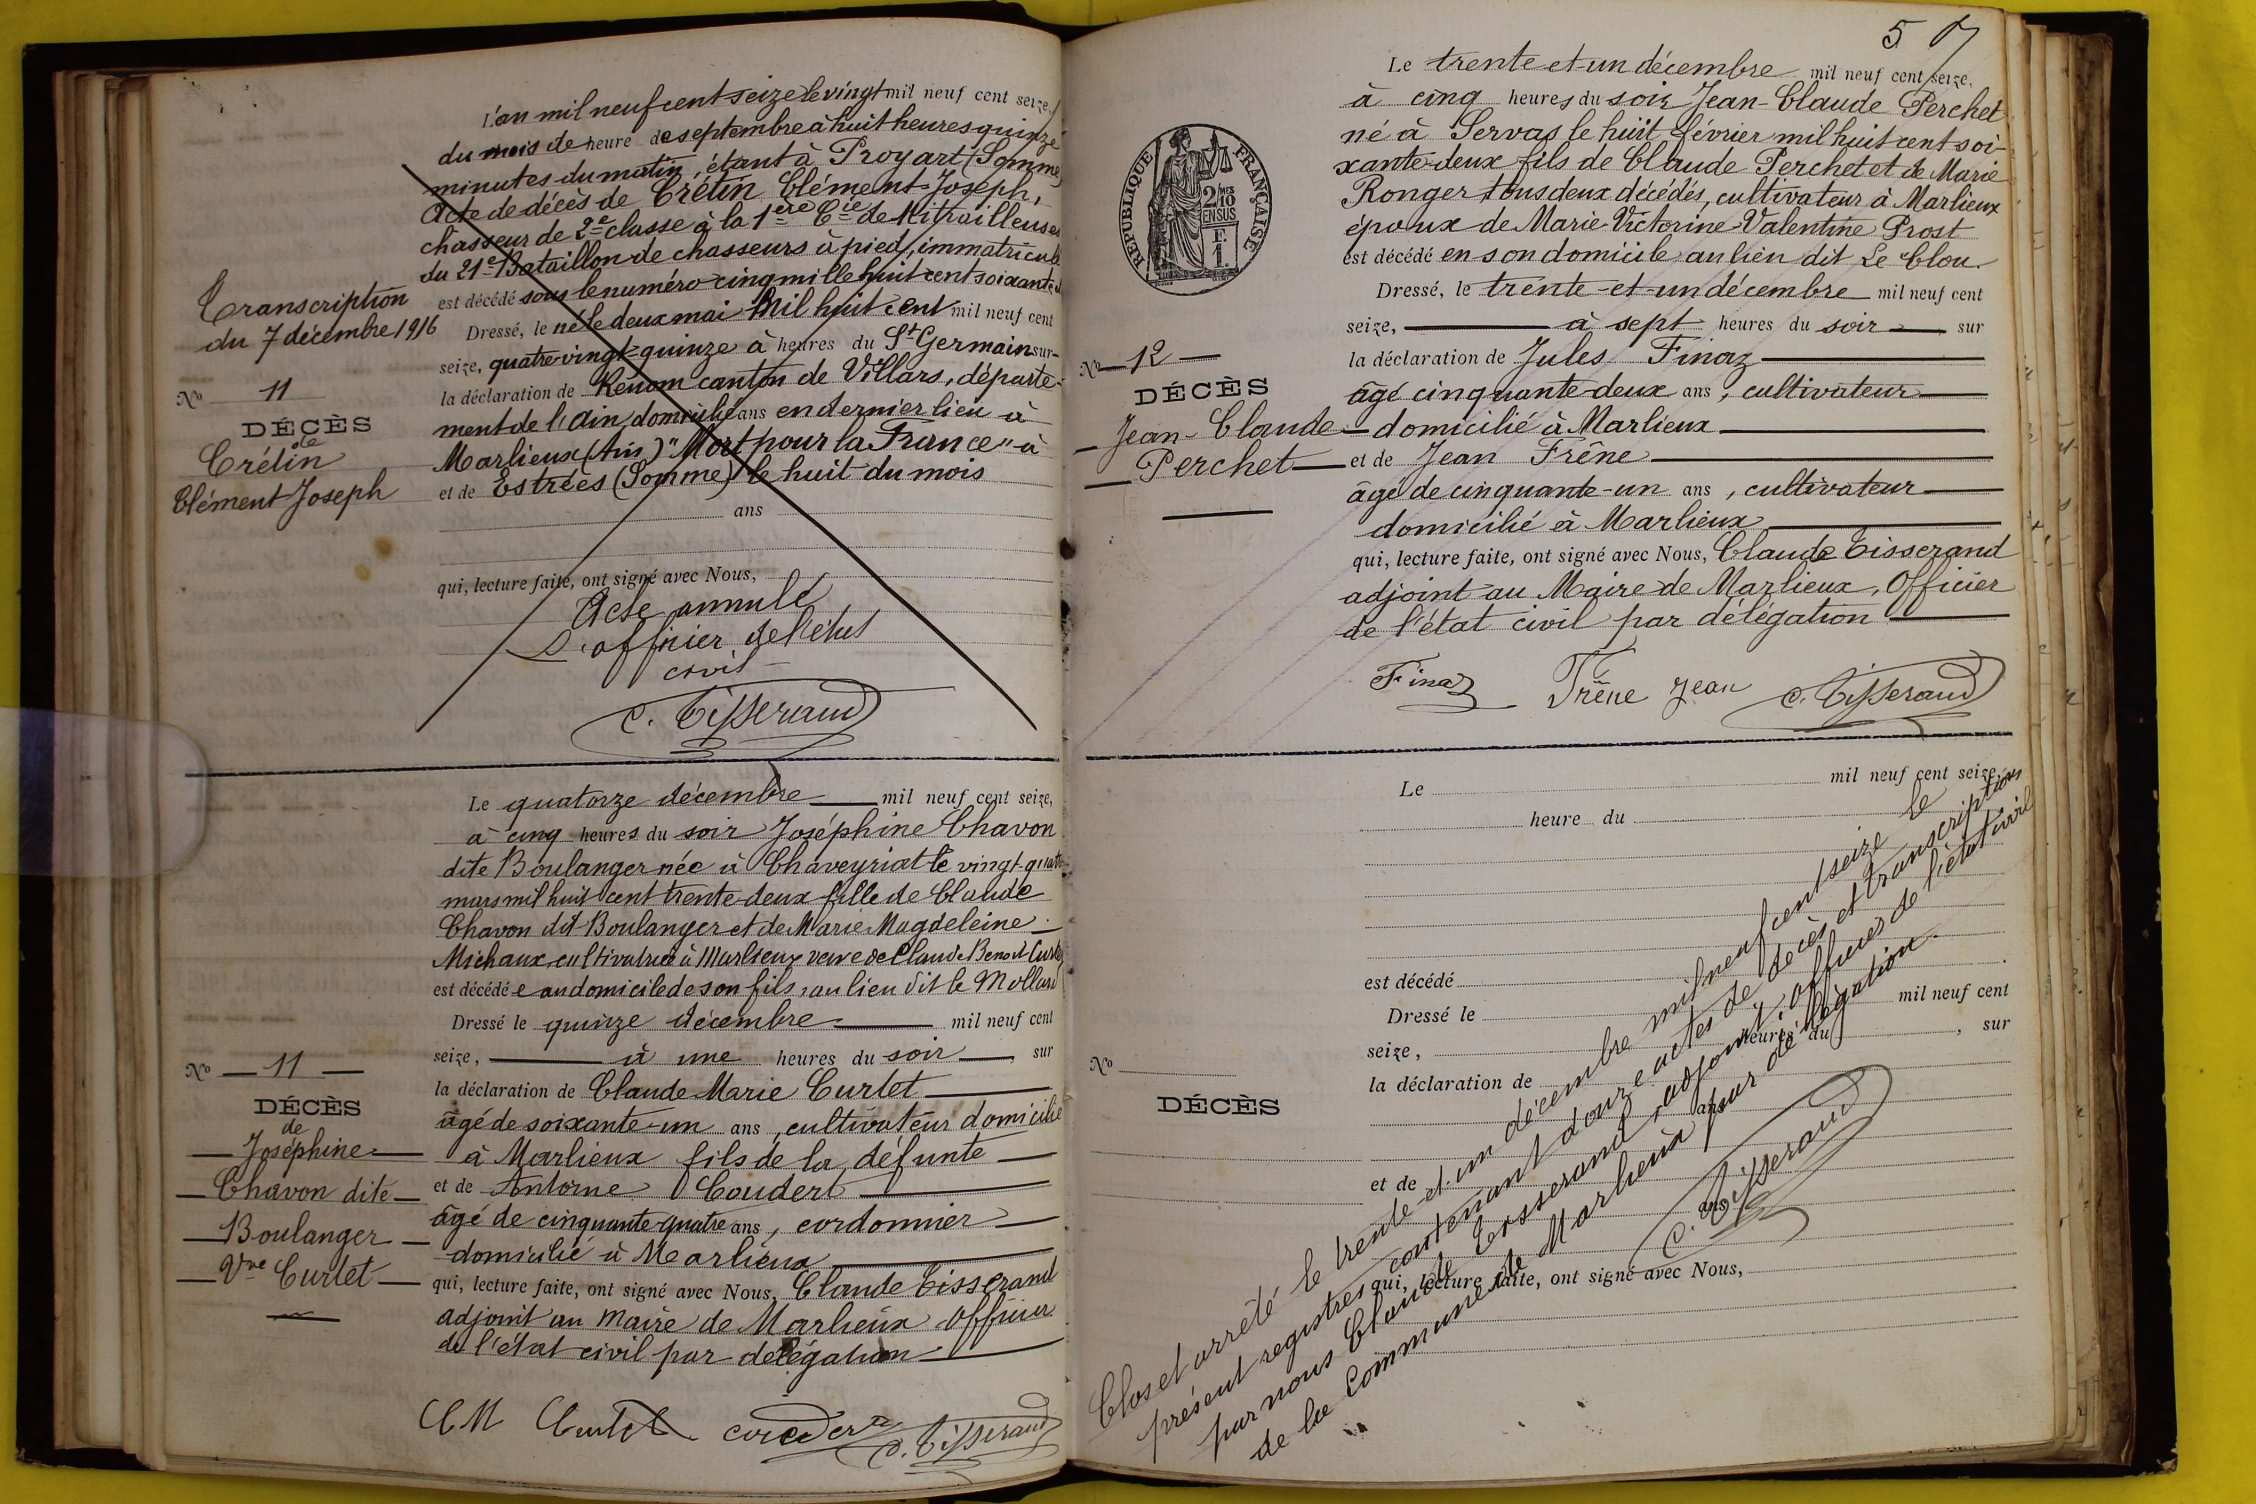 L'an mil neuf cent seize le vingt mil neuf cent seize,
du mois de heure de septembre à huit heures quinze
minutes du matin, étant à Proyart (Somme)
Acte de décès de Crétin Clément Joseph,
chasseur de 2e classe à la 1ère Cie de Mitrailleuses
du 21e Bataillon de chasseurs à pied, immatriculé
est décédé sous le numéro cinq mille huit cent soixante et
Dressé, le né le deux mai Mil huit cent mil neuf cent
seize, quatre-vingt-quinze à heures du St Germain sur-
la déclaration de Renom canton de Villars, départe-
ment de l'Ain, domicilié ans en dernier lieu à
Marlieux (Ain) "Mort pour la France" à
et de Estrées (Somme) le huit du mois
ans
qui, lecture faite, ont signé avec Nous,
Acte annulé
L'officier de l'état
civil
C. Tisserand
Transcription
du 7 décembre 1916
No 11
DÉCÈS
de
Crétin
Clément Joseph
Le quatorze décembre mil neuf cent seize,
à cinq heures du soir Joséphine Chavon
dite Boulanger née à Chaveyriat le vingt-quatre
mars mil huit cent trente-deux fille de Claude
Chavon dit Boulanger et de Marie Magdeleine
Michaux, cultivatrice à Marlieux veuve de Claude Benoit Curlet
est décédée au domicile de son fils, au lieu dit le Mollard
Dressé le quinze décembre mil neuf cent
seize, à une heures du soir, sur
la déclaration de Claude Marie Curlet
âgé de soixante-un ans, cultivateur domicilié
à Marlieux fils de la défunte
et de Antoine Couderc
âgé de cinquante-quatre ans, cordonnier
domicilié à Marlieux
qui, lecture faite, ont signé avec Nous, Claude Tisserand
adjoint au Maire de Marlieux Officier
de l'état civil par délégation
CM Curlet Couderc C. Tisserand
No 11
DÉCÈS
de
Joséphine
Chavon dite
Boulanger
Vve Curlet
5 7
Le trente et un décembre mil neuf cent seize,
à cinq heures du soir Jean-Claude Perchet
né à Servas le huit février mil huit cent soi-
xante-deux fils de Claude Perchet et de Marie
Ronger tous deux décédés, cultivateur à Marlieux
époux de Marie-Victorine-Valentine Prost
est décédé en son domicile au lieu dit Le Clou.
Dressé, le trente-et-un décembre mil neuf cent
seize, à sept heures du soir sur
la déclaration de Jules Finaz
âgé cinquante-deux ans, cultivateur
domicilié à Marlieux
et de Jean Frêne
âgé de cinquante-un ans, cultivateur
domicilié à Marlieux
qui, lecture faite, ont signé avec Nous, Claude Tisserand
adjoint au Maire de Marlieux, Officier
de l'état civil par délégation
Finaz Frêne Jean C. Tisserand
RÉPUBLIQUE FRANÇAISE
2/10 EN SUS
F.
1.
No 12
DÉCÈS
Jean-Claude
Perchet
Le mil neuf cent seize,
heure du
est décédé
Dressé le mil neuf cent
seize, heures du, sur
la déclaration de
ans
et de
ans
qui, lecture faite, ont signé avec Nous,
No
DÉCÈS
Clos et arrêté le trente et un décembre mil neuf cent seize le
présent registres contenant douze actes de décès et transcriptions
par nous Claude Tisserand, adjoint, officier de l'état civil
de la Commune de Marlieux par délégation.
C. Tisserand